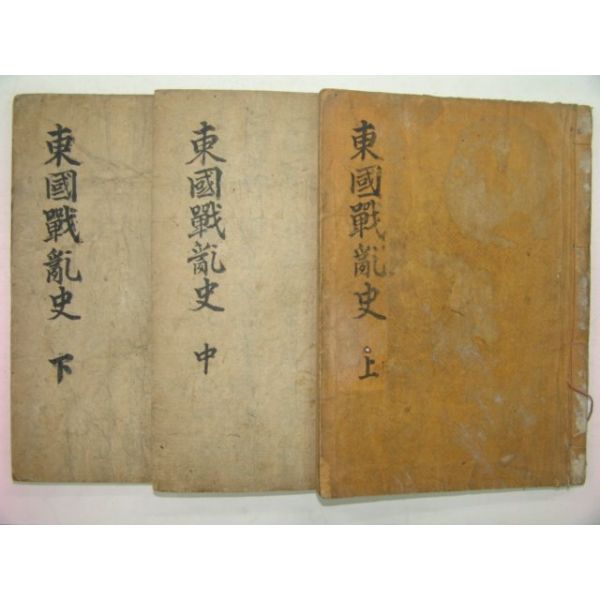 東國戰亂史 上
東國戰亂史 中
東國戰亂史 下